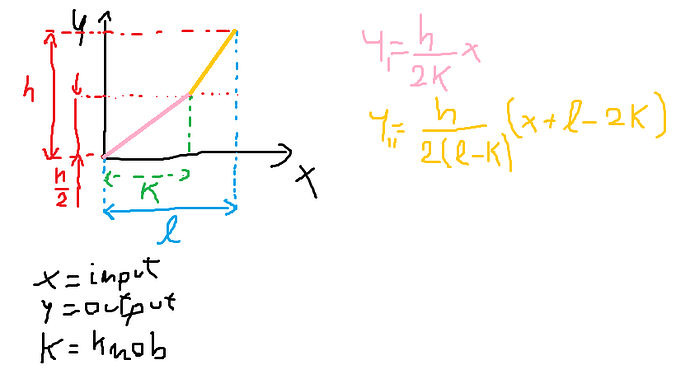 y
h
h/2
K
x
l
y_I = h/2K x
y_II = h/2(l-K) (x+l-2K)
x = input
y = output
K = knob